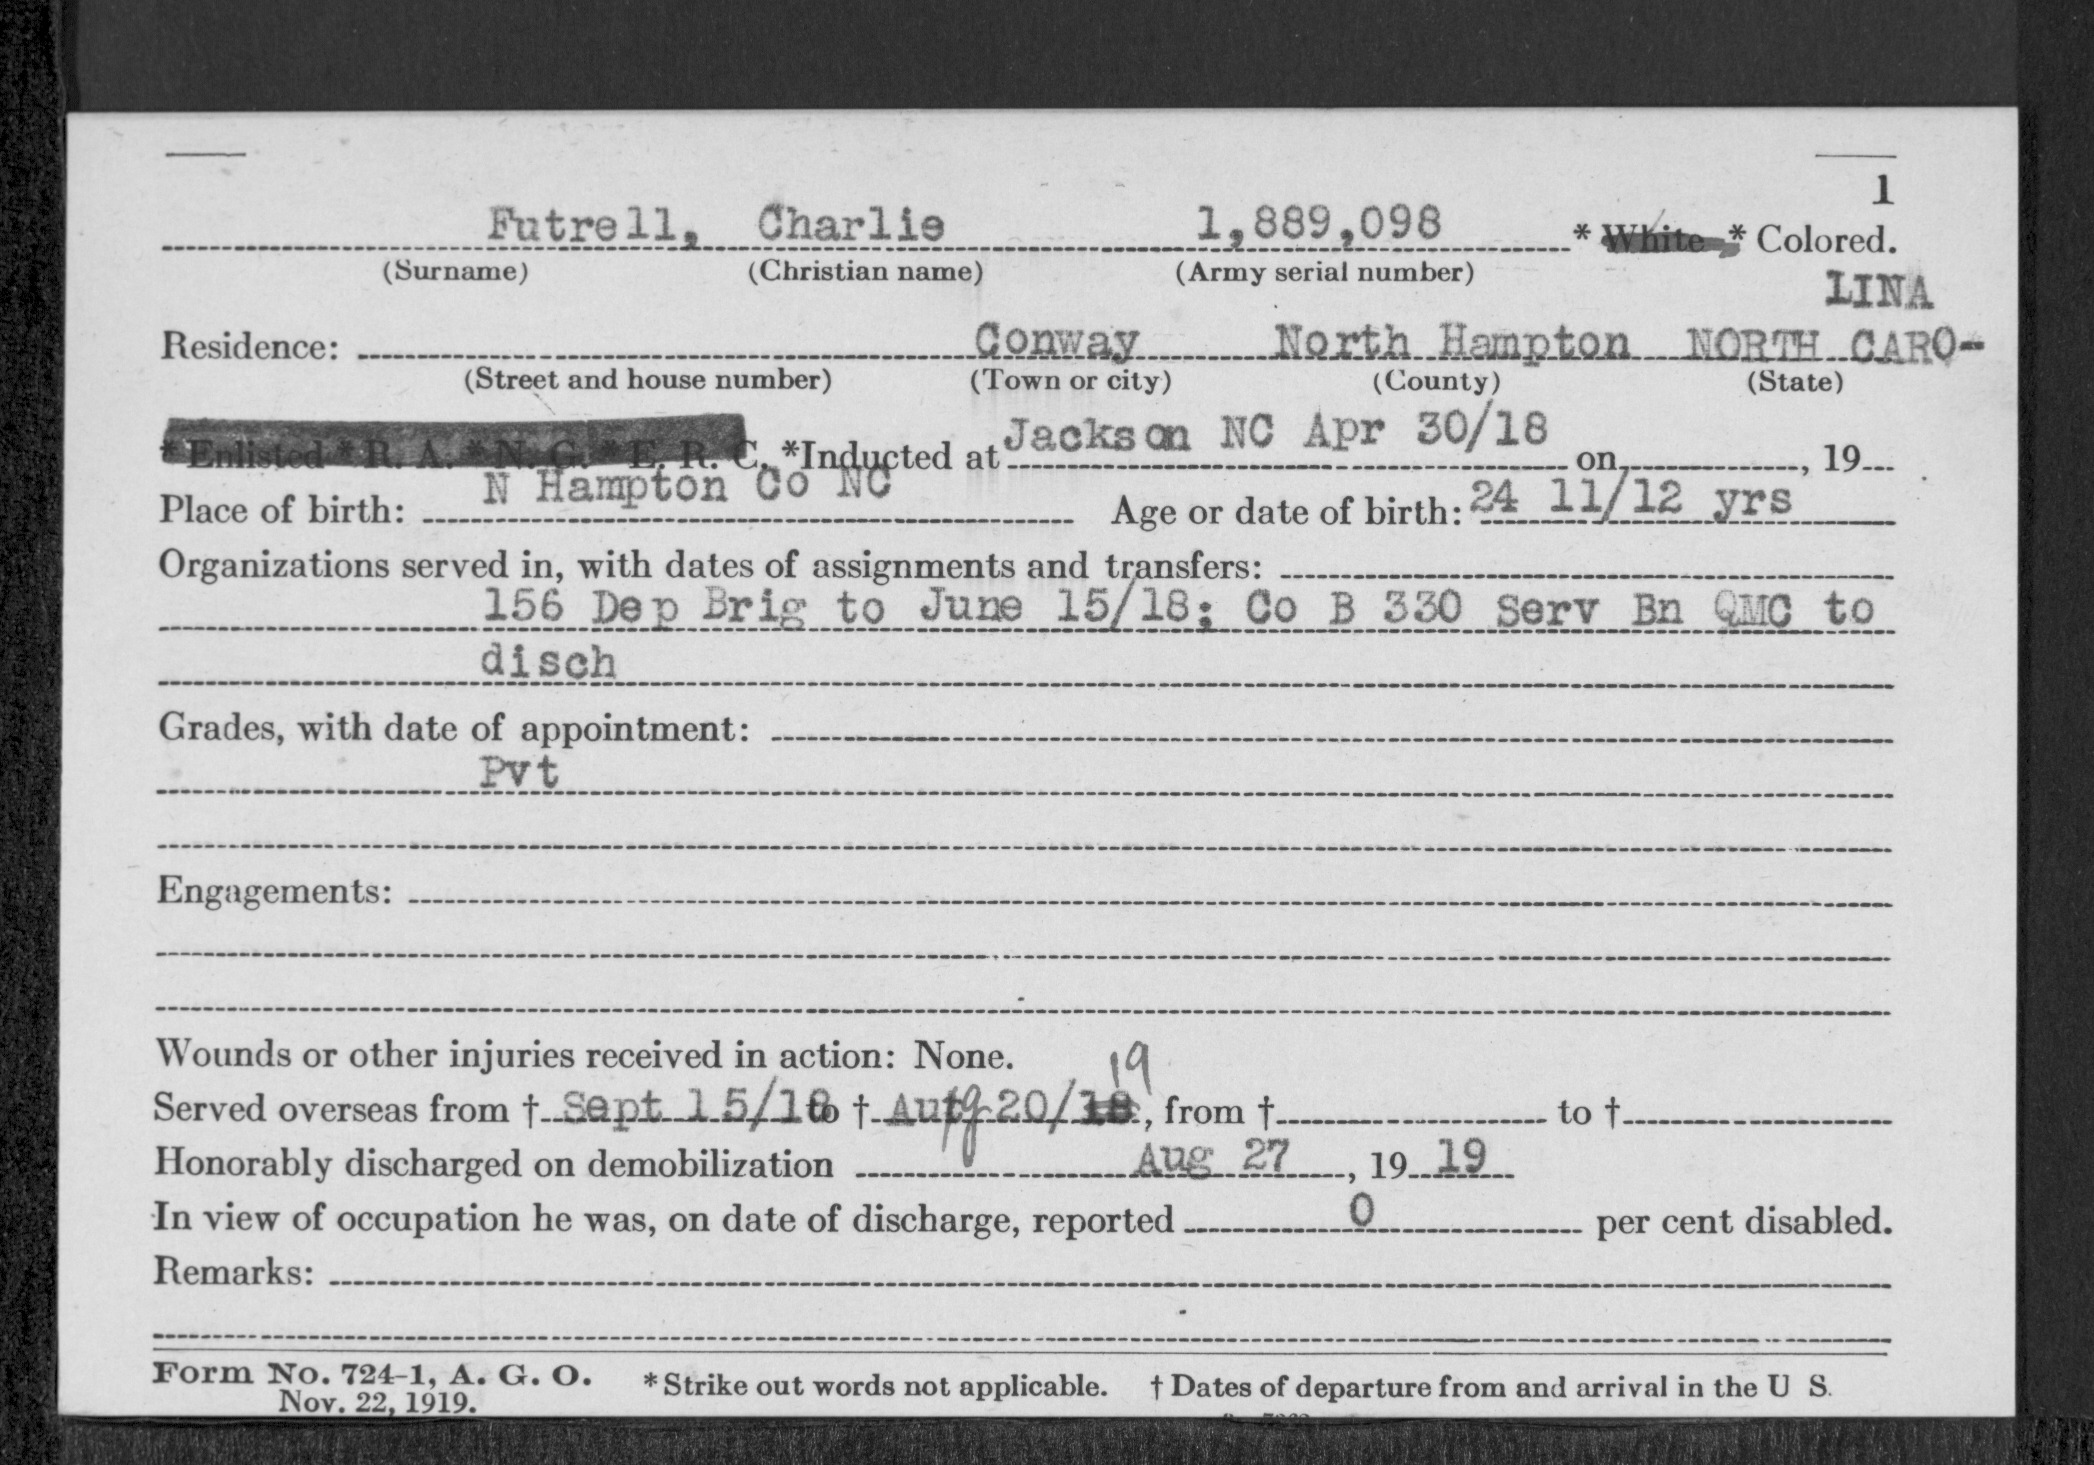 1
Futrell, Charlie 1,889,098 * White * Colored.
(Surname) (Christian name) (Army serial number)
LINA
Residence: Conway North Hampton NORTH CARO-
(Street and house number) (Town or city) (County) (State)
* Enlisted * R. A. * N. G. * E. R. C. *Inducted at Jackson NC Apr 30/18 on , 19
Place of birth: N Hampton Co NC Age or date of birth: 24 11/12 yrs
Organizations served in, with dates of assignments and transfers:
156 Dep Brig to June 15/18; Co B 330 Serv Bn QMC to
disch
Grades, with date of appointment:
Pvt
Engagements:
Wounds or other injuries received in action: None.
19
Served overseas from † Sept 15/18 to † Aug 20/18, from † to †
Honorably discharged on demobilization Aug 27, 19 19
In view of occupation he was, on date of discharge, reported 0 per cent disabled.
Remarks:
Form No. 724-1, A. G. O. * Strike out words not applicable. † Dates of departure from and arrival in the U S.
Nov. 22, 1919.